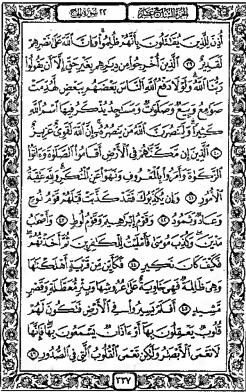 الجزء السابع عشر ٢٢ سورة الحج
أُذِنَ لِلَّذِينَ يُقَـٰتَلُونَ بِأَنَّهُمْ ظُلِمُوا۟ وَإِنَّ ٱللَّهَ عَلَىٰ نَصْرِهِمْ
لَقَدِيرٌ ٣٩ ٱلَّذِينَ أُخْرِجُوا۟ مِن دِيَـٰرِهِم بِغَيْرِ حَقٍّ إِلَّآ أَن يَقُولُوا۟
رَبُّنَا ٱللَّهُ وَلَوْلَا دَفْعُ ٱللَّهِ ٱلنَّاسَ بَعْضَهُم بِبَعْضٍ لَّهُدِّمَتْ
صَوَٰمِعُ وَبِيَعٌ وَصَلَوَٰتٌ وَمَسَـٰجِدُ يُذْكَرُ فِيهَا ٱسْمُ ٱللَّهِ
كَثِيرًا وَلَيَنصُرَنَّ ٱللَّهُ مَن يَنصُرُهُۥٓ إِنَّ ٱللَّهَ لَقَوِىٌّ عَزِيزٌ
٤٠ ٱلَّذِينَ إِن مَّكَّنَّـٰهُمْ فِى ٱلْأَرْضِ أَقَامُوا۟ ٱلصَّلَوٰةَ وَءَاتَوُا۟
ٱلزَّكَوٰةَ وَأَمَرُوا۟ بِٱلْمَعْرُوفِ وَنَهَوْا۟ عَنِ ٱلْمُنكَرِ وَلِلَّهِ عَـٰقِبَةُ
ٱلْأُمُورِ ٤١ وَإِن يُكَذِّبُوكَ فَقَدْ كَذَّبَتْ قَبْلَهُمْ قَوْمُ نُوحٍ
وَعَادٌ وَثَمُودُ ٤٢ وَقَوْمُ إِبْرَٰهِيمَ وَقَوْمُ لُوطٍ ٤٣ وَأَصْحَـٰبُ
مَدْيَنَ وَكُذِّبَ مُوسَىٰ فَأَمْلَيْتُ لِلْكَـٰفِرِينَ ثُمَّ أَخَذْتُهُمْ
فَكَيْفَ كَانَ نَكِيرِ ٤٤ فَكَأَيِّن مِّن قَرْيَةٍ أَهْلَكْنَـٰهَا
وَهِىَ ظَالِمَةٌ فَهِىَ خَاوِيَةٌ عَلَىٰ عُرُوشِهَا وَبِئْرٍ مُّعَطَّلَةٍ وَقَصْرٍ
مَّشِيدٍ ٤٥ أَفَلَمْ يَسِيرُوا۟ فِى ٱلْأَرْضِ فَتَكُونَ لَهُمْ
قُلُوبٌ يَعْقِلُونَ بِهَآ أَوْ ءَاذَانٌ يَسْمَعُونَ بِهَا فَإِنَّهَا
لَا تَعْمَى ٱلْأَبْصَـٰرُ وَلَـٰكِن تَعْمَى ٱلْقُلُوبُ ٱلَّتِى فِى ٱلصُّدُورِ ٤٦
٣٣٧